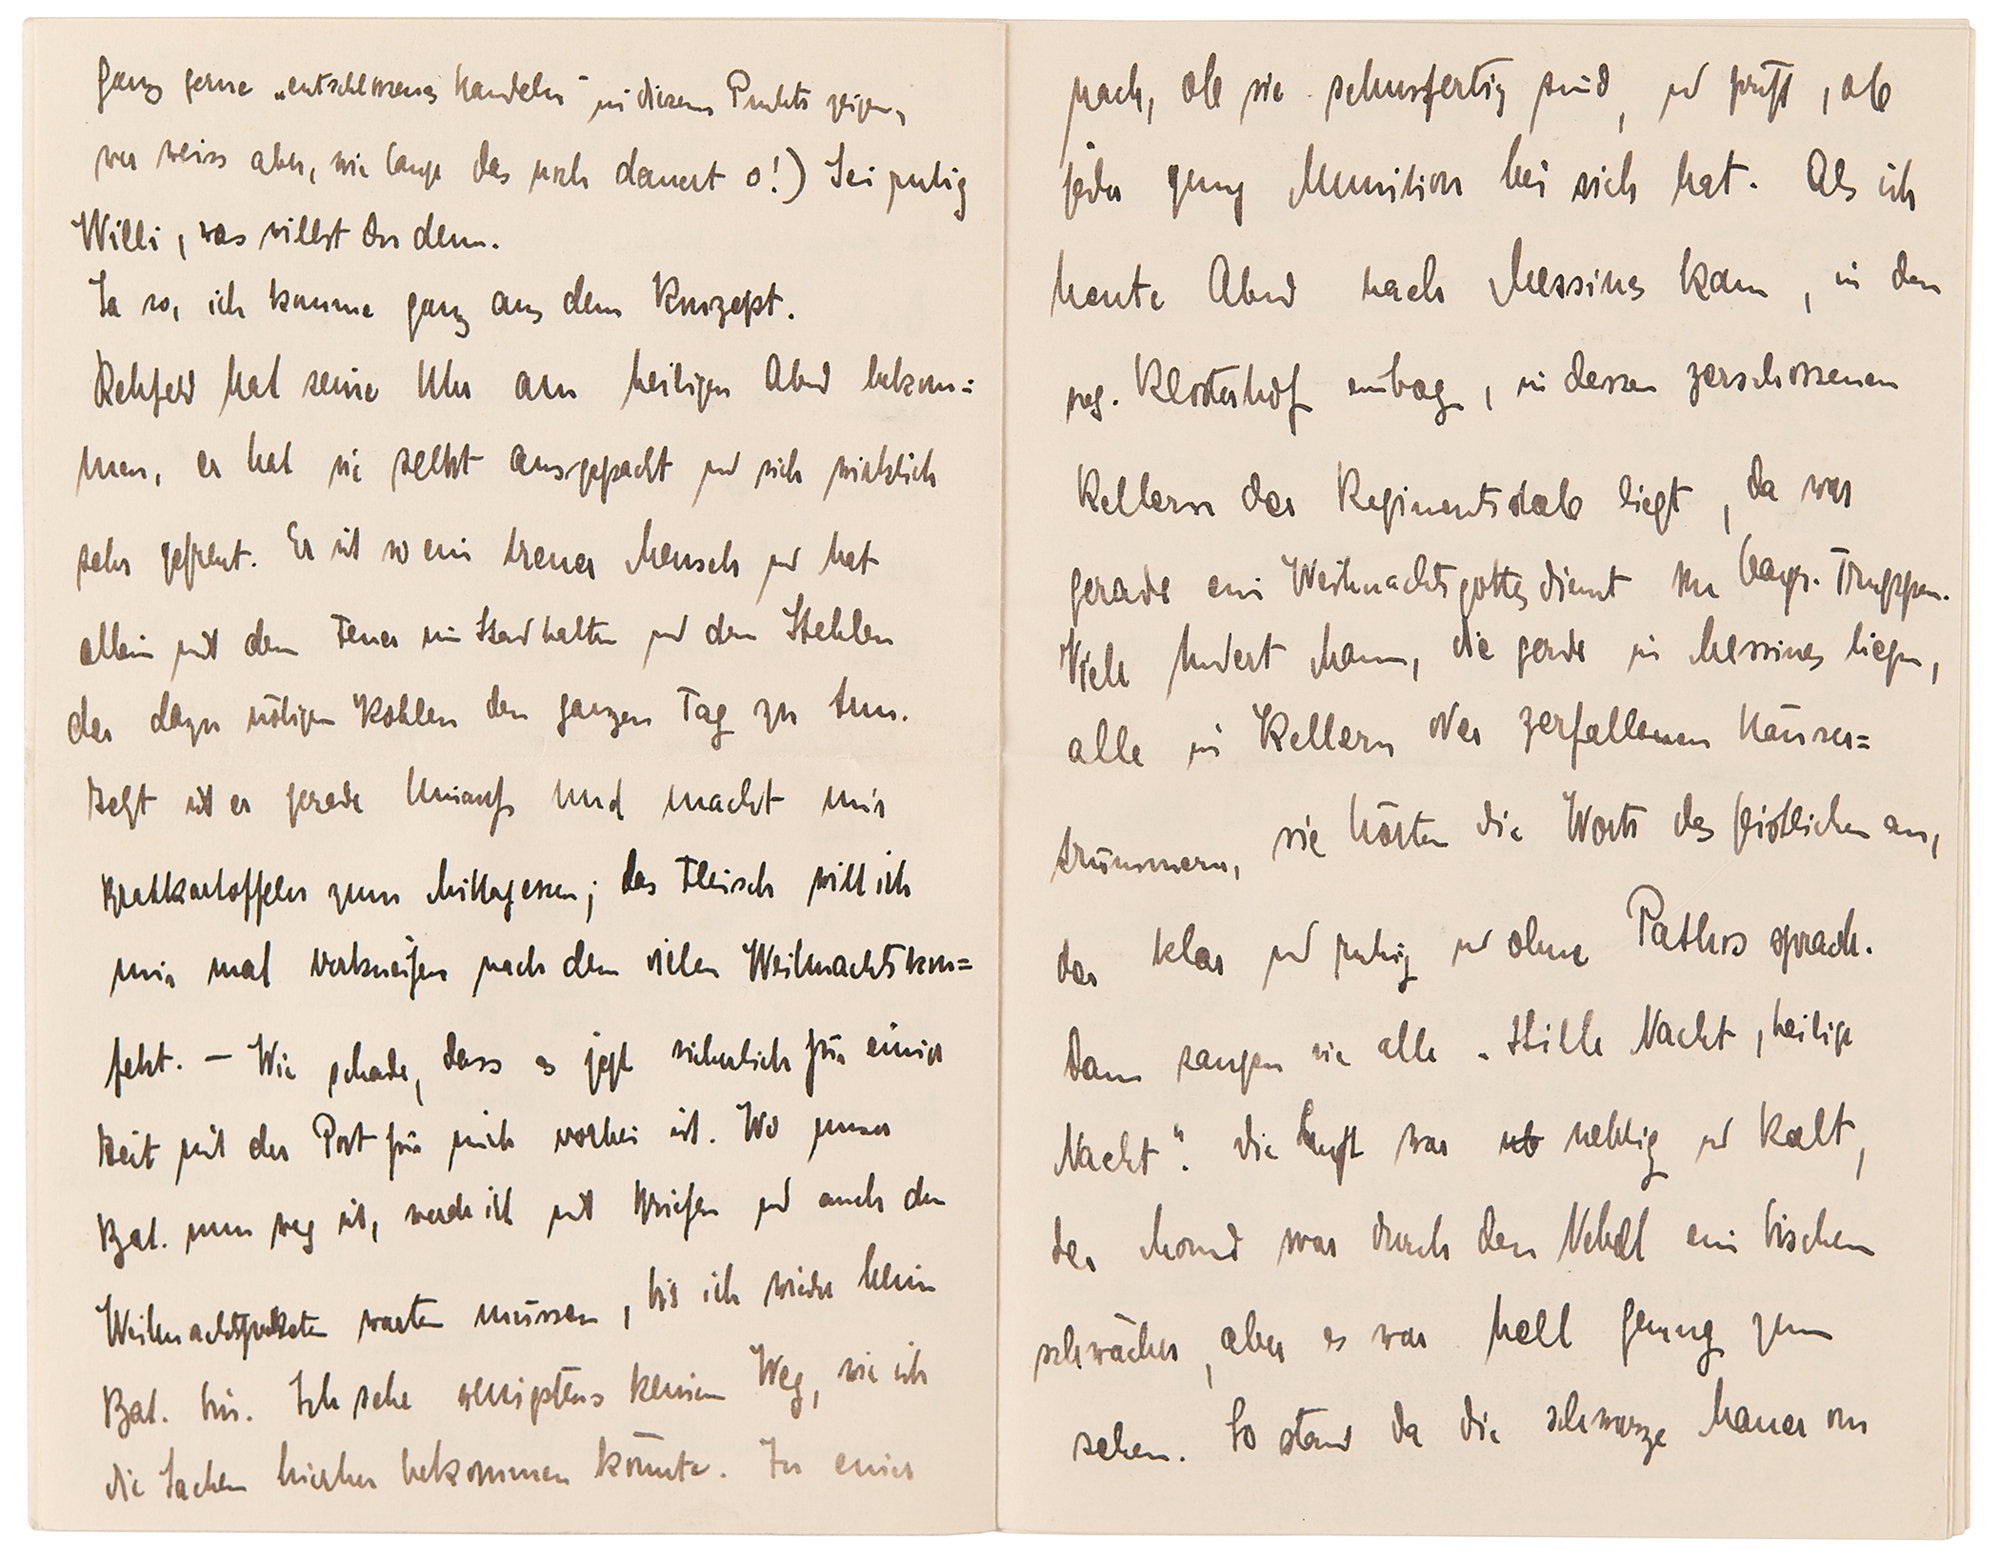 ganz gerne „entschlossenes Handeln" in diesem Punkte zeigen,
wer weiss aber, wie lange das noch dauert o!) Sei ruhig
Willi, was willst Du denn.
Ja so, ich komme ganz aus dem Konzept.
Rehfeld hat seine Uhr am heiligen Abend bekom=
men, er hat sie selbst ausgepackt und sich wirklich
sehr gefreut. Er ist so ein treuer Mensch und hat
allein mit dem Feuer im Stand halten und dem Stehlen
der dazu nötigen Kohlen den ganzen Tag zu tun.
Jetzt ist er gerade hinauf und macht mir
Bratkartoffeln zum Mittagessen; das Fleisch will ich
mir mal verkneifen nach dem vielen Weihnachtskon=
fekt. – Wie schade, dass es jetzt sicherlich für einige
Zeit mit der Post für mich vorbei ist. Wo unser
Bat. nun weg ist, werde ich mit Briefen und auch den
Weihnachtspaketen warten müssen, bis ich wieder beim
Bat. bin. Ich sehe wenigstens keinen Weg, wie ich
die Sachen hierher bekommen könnte. In einer
nach, ob sie schussfertig sind, und prüft, ob
jeder genug Munition bei sich hat. Als ich
heute Abend nach Messines kam, in den
sog. Klosterhof einbog, in dessen zerschossenen
Kellern der Regimentsstab liegt, da war
gerade ein Weihnachtsgottesdienst der bayr. Truppen.
Viele hundert Mann, die gerade in Messines liegen,
alle in Kellern oder zerfallenen Häuser=
trümmern, sie hörten die Worte des Geistlichen an,
der klar und ruhig und ohne Pathos sprach.
Dann sangen sie alle „Stille Nacht, heilige
Nacht". Die Luft war neblig und kalt,
der Mond war durch den Nebel ein bischen
schwächer, aber es war hell genug zum
sehen. So stand da die schwarze Mauer von